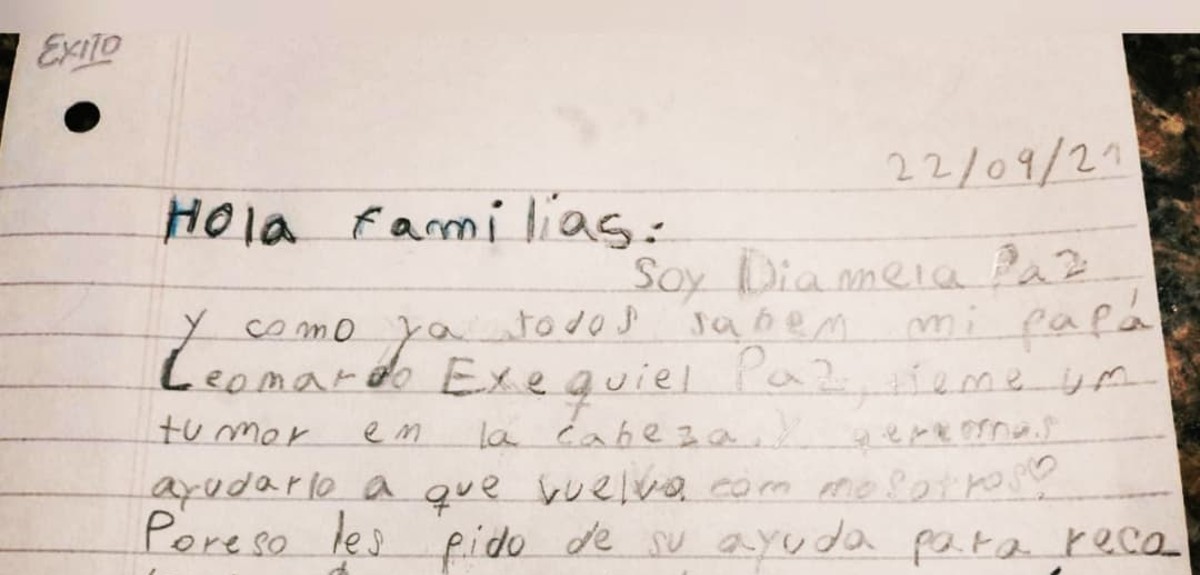 EXITO
22/09/21
Hola familias:
Soy Diamela Paz
y como ya todos saben mi papá
Leomardo Exequiel Paz, tieme um
tumor em la cabeza. y
ayudarlo a que vuelva com mosotros♡.
Poreso les pido de su ayuda para reca